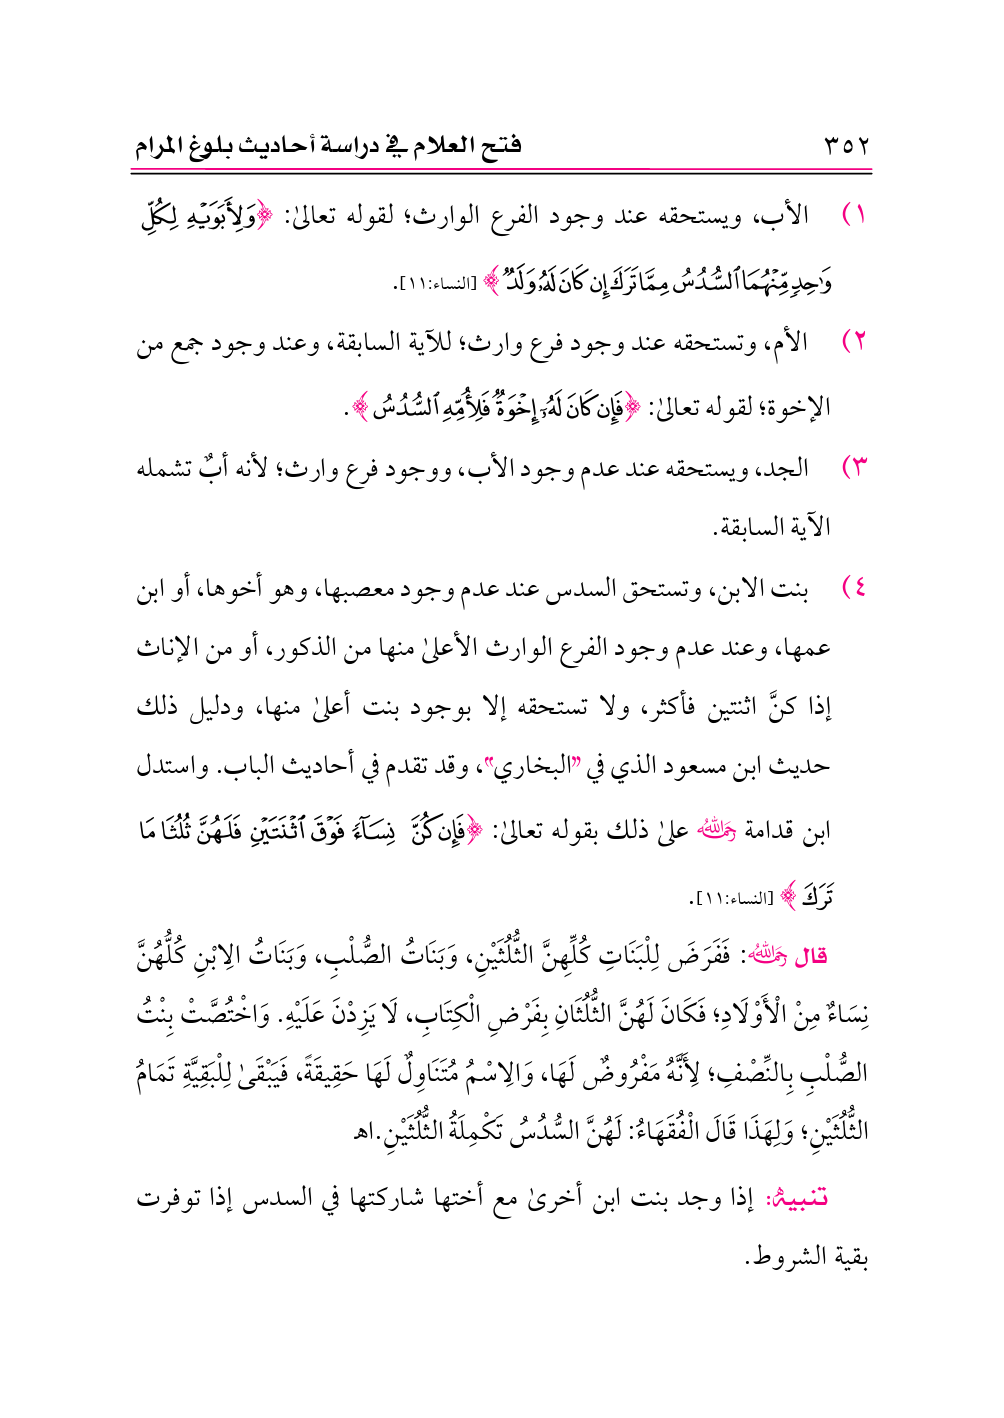 ٣٥٢ فتح العلام في دراسة أحاديث بلوغ المرام
١) الأب، ويستحقه عند وجود الفرع الوارث؛ لقوله تعالىٰ: ﴿وَلِأَبَوَيْهِ لِكُلِّ
وَٰحِدٍ مِّنْهُمَا ٱلسُّدُسُ مِمَّا تَرَكَ إِن كَانَ لَهُۥ وَلَدٌ﴾ [النساء:١١].
٢) الأم، وتستحقه عند وجود فرع وارث؛ للآية السابقة، وعند وجود جمع من
الإخوة؛ لقوله تعالىٰ: ﴿فَإِن كَانَ لَهُۥٓ إِخْوَةٌ فَلِأُمِّهِ ٱلسُّدُسُ﴾.
٣) الجد، ويستحقه عند عدم وجود الأب، ووجود فرع وارث؛ لأنه أبٌ تشمله
الآية السابقة.
٤) بنت الابن، وتستحق السدس عند عدم وجود معصبها، وهو أخوها، أو ابن
عمها، وعند عدم وجود الفرع الوارث الأعلىٰ منها من الذكور، أو من الإناث
إذا كنَّ اثنتين فأكثر، ولا تستحقه إلا بوجود بنت أعلىٰ منها، ودليل ذلك
حديث ابن مسعود الذي في "البخاري"، وقد تقدم في أحاديث الباب. واستدل
ابن قدامة رحمه الله علىٰ ذلك بقوله تعالىٰ: ﴿فَإِن كُنَّ نِسَآءً فَوْقَ ٱثْنَتَيْنِ فَلَهُنَّ ثُلُثَا مَا
تَرَكَ﴾ [النساء:١١].
قال رحمه الله: فَفَرَضَ لِلْبَنَاتِ كُلِّهِنَّ الثُّلُثَيْنِ، وَبَنَاتُ الصُّلْبِ، وَبَنَاتُ الِابْنِ كُلُّهُنَّ
نِسَاءٌ مِنْ الْأَوْلَادِ؛ فَكَانَ لَهُنَّ الثُّلُثَانِ بِفَرْضِ الْكِتَابِ، لَا يَزِدْنَ عَلَيْهِ. وَاخْتُصَّتْ بِنْتُ
الصُّلْبِ بِالنِّصْفِ؛ لِأَنَّهُ مَفْرُوضٌ لَهَا، وَالِاسْمُ مُتَنَاوِلٌ لَهَا حَقِيقَةً، فَيَبْقَىٰ لِلْبَقِيَّةِ تَمَامُ
الثُّلُثَيْنِ؛ وَلِهَذَا قَالَ الْفُقَهَاءُ: لَهُنَّ السُّدُسُ تَكْمِلَةُ الثُّلُثَيْنِ.اهـ
تنبيهٌ: إذا وجد بنت ابن أخرىٰ مع أختها شاركتها في السدس إذا توفرت
بقية الشروط.